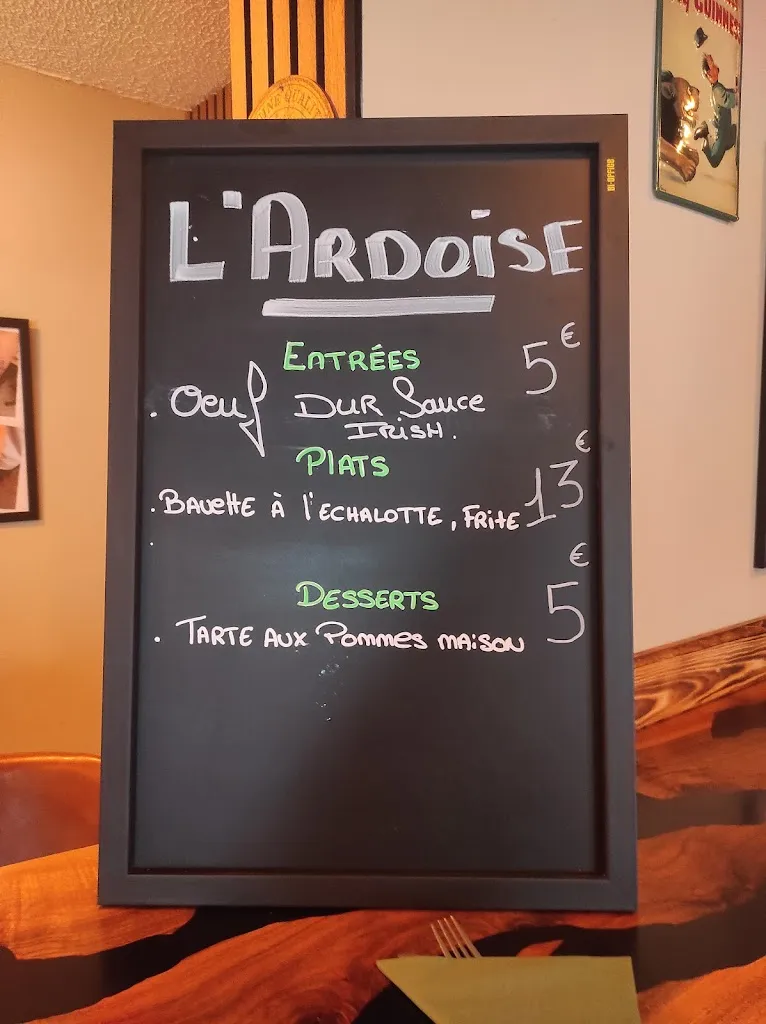 FINE QUALIT
GUINNESS
BI-OFFICE
L'ARDOISE
ENTRÉES 5€
. Oeuf DUR Sauce
IRISH.
PLATS
. BAVETTE À l'ECHALOTTE, FRITE 13€
.
DESSERTS
. TARTE AUX POMMES MAISON 5€